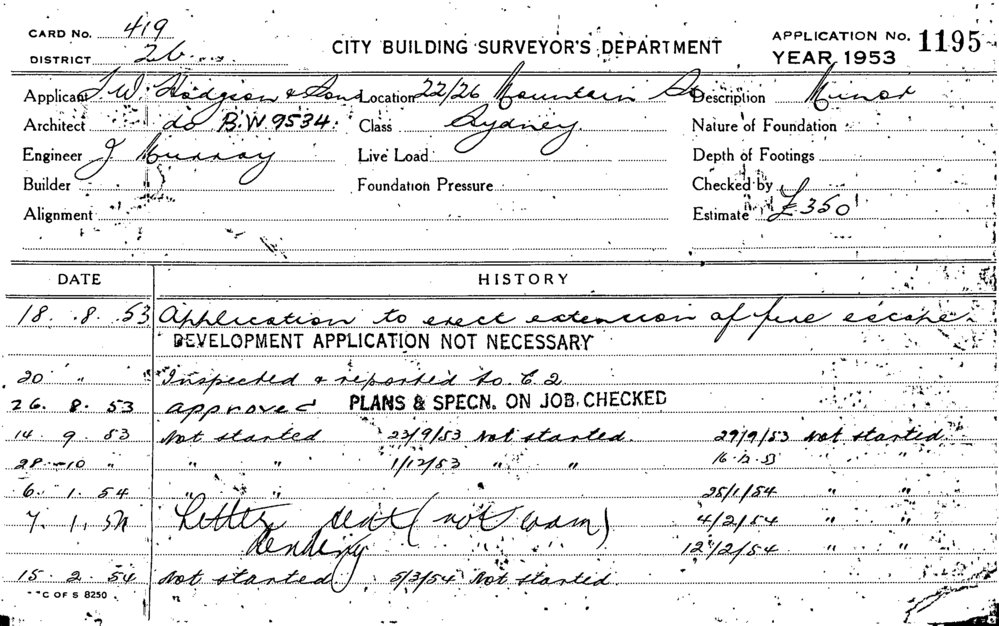 CARD No. 419
DISTRICT 26
CITY BUILDING SURVEYOR'S DEPARTMENT
APPLICATION No. 1195
YEAR 1953
Applicant T. W. Hodgson & Sons Location 22/26 Mountain St Description Minor
Architect do B.W 9534. Class Sydney Nature of Foundation
Engineer J Murray Live Load Depth of Footings
Builder Foundation Pressure Checked by
Alignment Estimate £350
DATE HISTORY
18. 8. 53 Application to erect extension of fire escape.
DEVELOPMENT APPLICATION NOT NECESSARY
20 " Inspected & reported to C.2
26. 8. 53 approved PLANS & SPECN. ON JOB CHECKED
14 9. 53 Not started 23/9/53 Not started. 29/9/53 Not started.
28-10 " " " 1/12/53 " " 16.12.53
6. 1. 54 " " 25/1/54 " "
7. 1. 54 Letter sent (not com) 4/2/54 " "
Pending " " 12/2/54 " "
15. 2. 54 Not started 5/3/54 Not started.
C OF S 8250